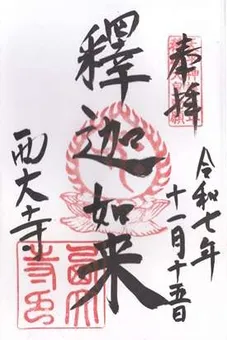 奉拝
令和七年
十一月十五日
釋迦如来
西大寺